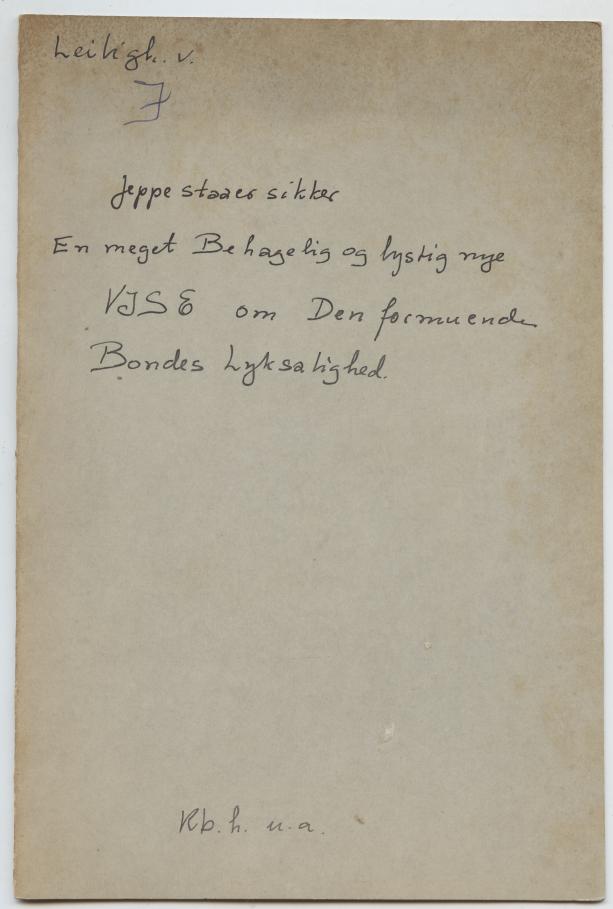 Leiligh. v.
J
Jeppe staaer sikker
En meget Behagelig og lystig nye
VJSE om Den formuende
Bondes Lyksalighed.
Kb.h. u.a.